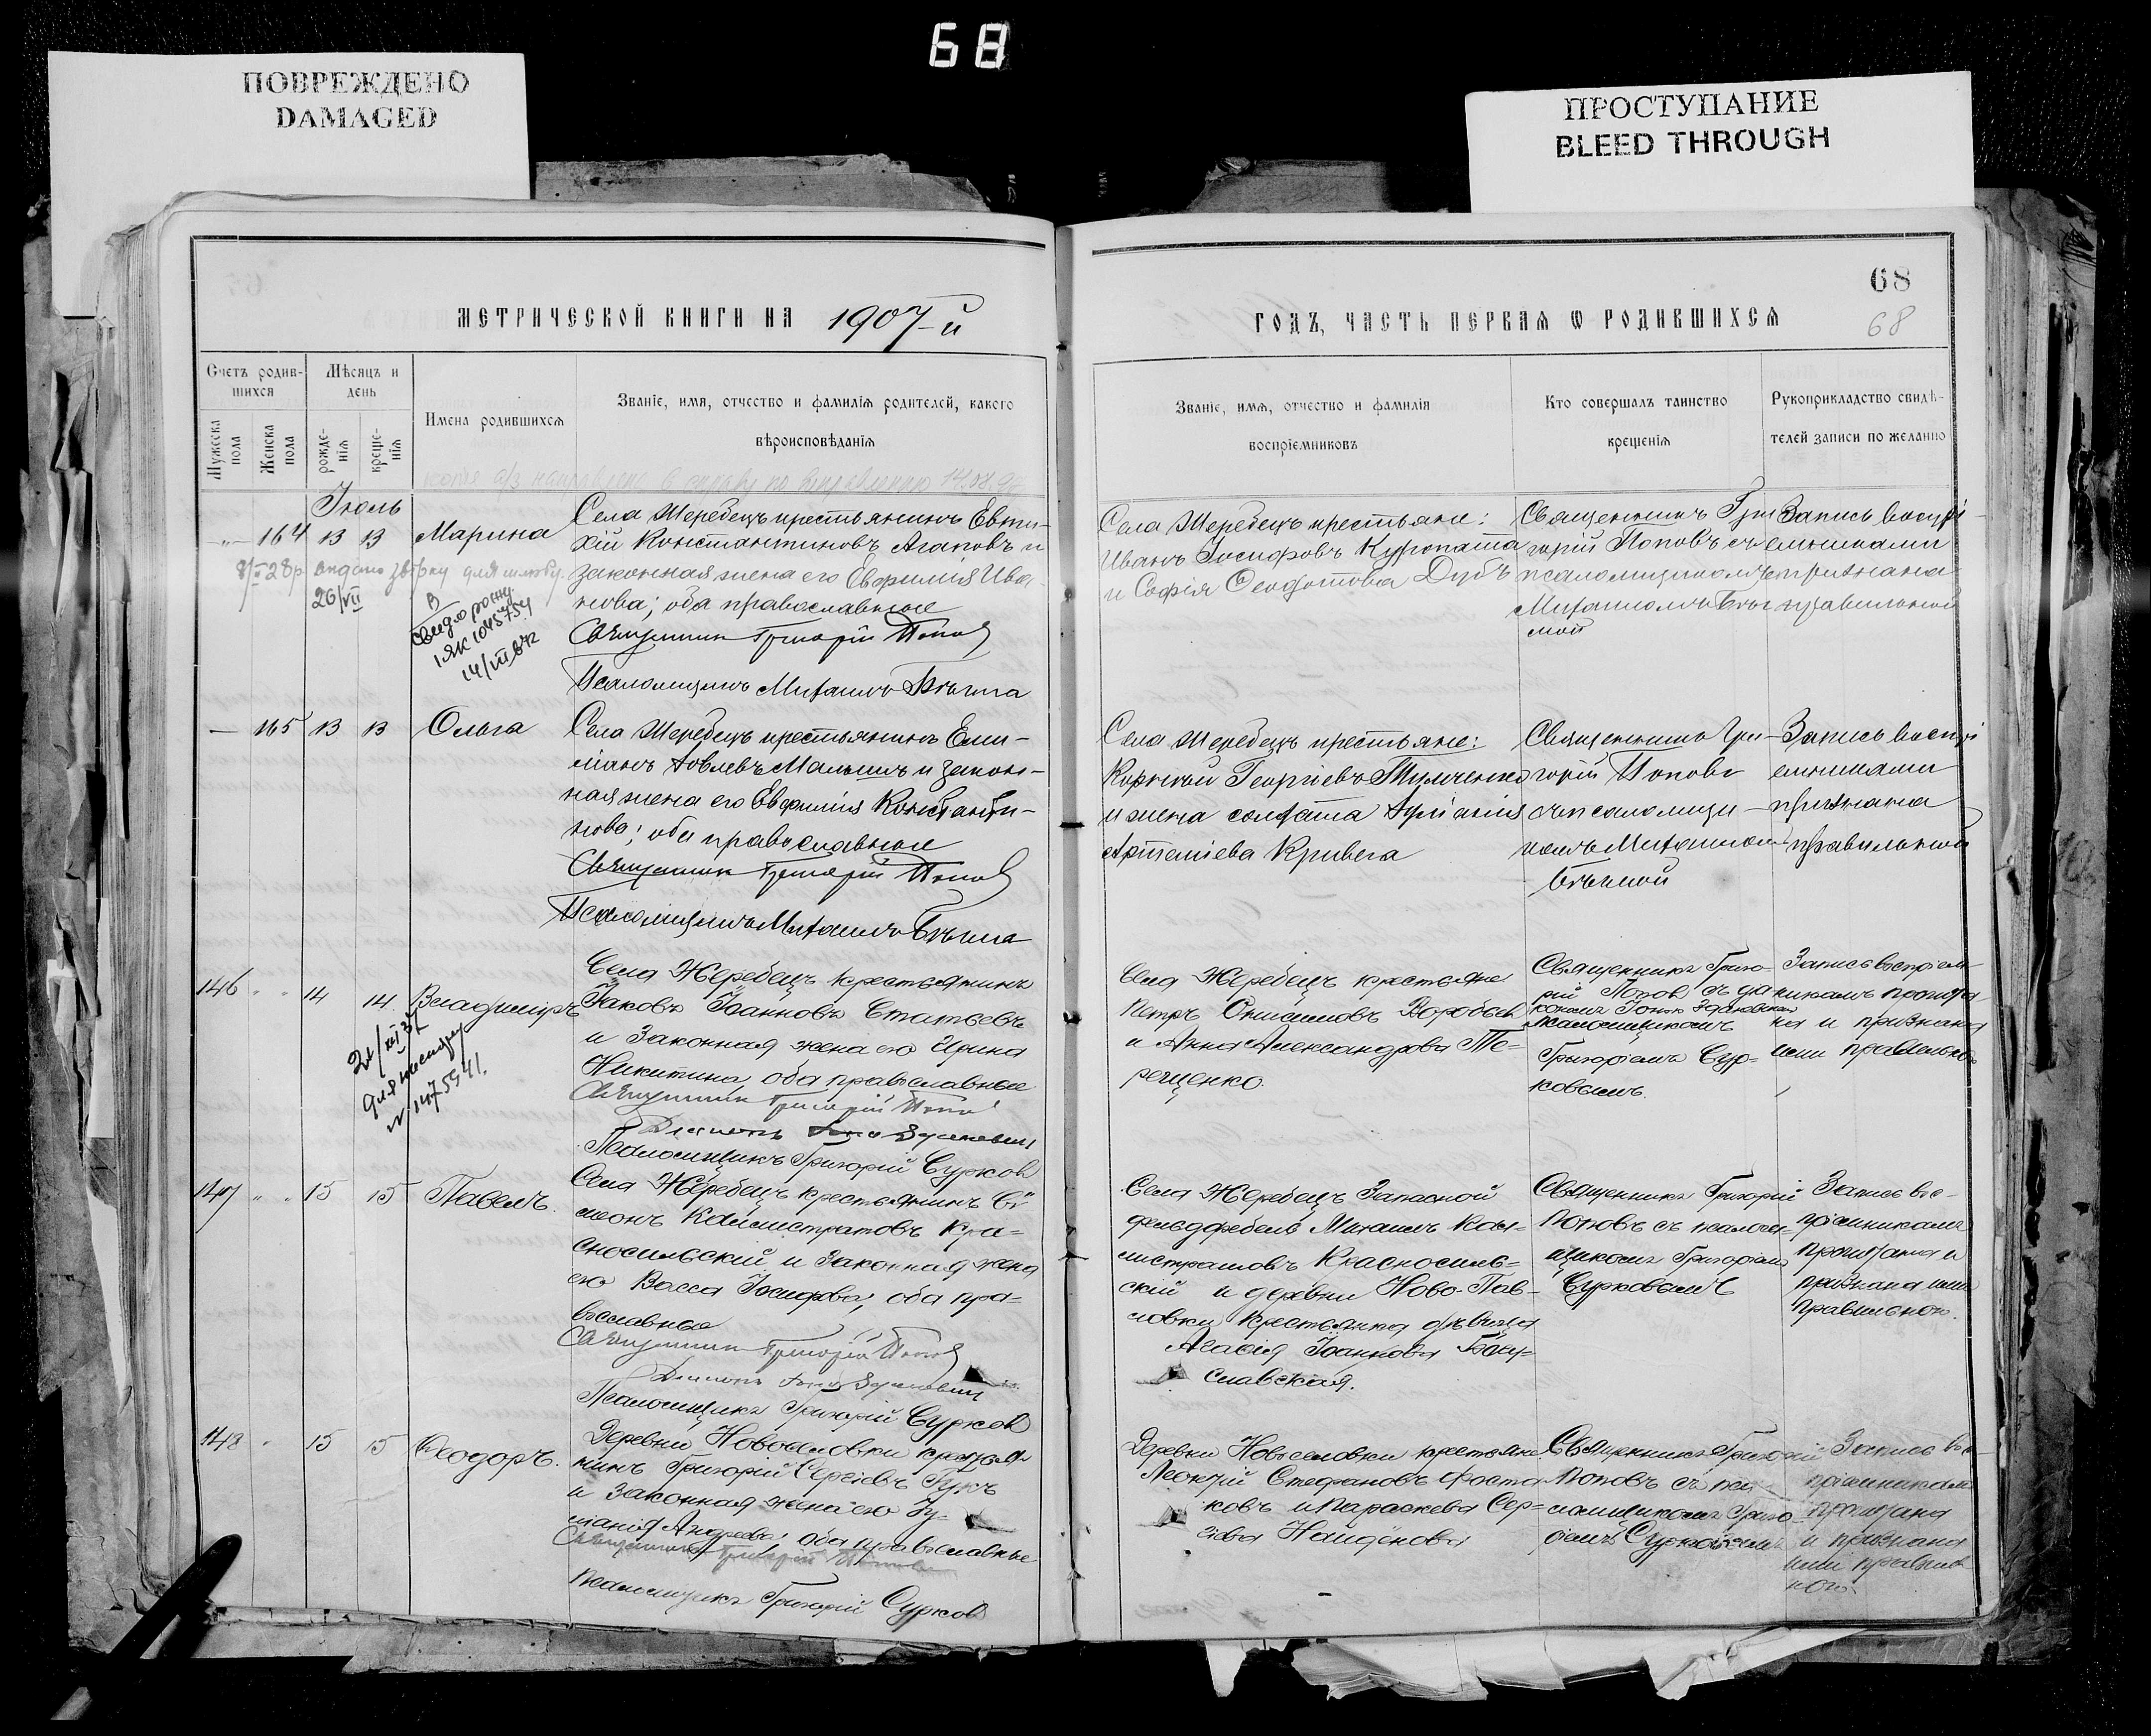 68
ПОВРЕЖДЕНО
DAMAGED
ПРОСТУПАНИЕ
BLEED THROUGH
68
68
МЕТРИЧЕСКОЙ КНИГИ НА 1907-й
ГОДЪ, ЧАСТЬ ПЕРВАЯ Ѡ РОДИВШИХСЯ
Счетъ родив-
шихся
Мужеска
пола
Женска
пола
Мѣсяцъ и
день
рожде-
нія
креще-
нія
Имена родившихся
Званіе, имя, отчество и фамилія родителей, какого
вѣроисповѣданія
Званіе, имя, отчество и фамилія
воспріемниковъ
Кто совершалъ таинство
крещенія
Рукоприкладство свидѣ-
телей записи по желанію
Іюль
164 13 13 Марина
26/VII
14/VII
Села Жеребецъ крестьянинъ Евти-
хій Константиновъ Агаповъ и
законная жена его Евфимія Ива-
нова; оба православные
Священникъ Григорій Поповъ
Псаломщикъ Михаилъ Бѣгма
Села Жеребецъ крестьяне:
Иванъ Іосифовъ Куропата
и Софія Ѳеодотова Дубъ
Священникъ Гри
горій Поповъ съ
псаломщикомъ
Михаиломъ Бѣг
мой
Запись воспрі-
емниками
признана
правильной
— 165 13 13 Ольга
Села Жеребецъ крестьянинъ Еми-
ліанъ Іовлевъ Малышъ и закон-
ная жена его Евфимія Константи-
нова; оба православные
Священникъ Григорій Поповъ
Псаломщикъ Михаилъ Бѣгма
Села Жеребецъ крестьяне:
Корнилій Георгіевъ
и жена солдата Іуліанія
Артеміева Кривега
Священникъ Гри-
горій Поповъ
съ псаломщи-
комъ Михаиломъ
Бѣгмой
Запись воспрі
емниками
признана
правильной
146 14 14 Владиміръ
Села Жеребецъ крестьянинъ
Яковъ Іоанновъ Статьевъ
и законная жена его Ирина
Никитина, оба православные
Священникъ Григорій Поповъ
Діаконъ
Псаломщикъ Григорій Сурковъ
Села Жеребецъ крестьяне
Петръ Онисимовъ Воробьев
и Анна Александрова Те-
рещенко.
Священникъ Григо-
рій Поповъ съ діа
кономъ
псаломщикомъ
Григоріемъ Сур-
ковымъ.
Запись воспріем-
никамъ прочита-
на и признана
ими правильно
147 15 15 Павелъ.
Села Жеребецъ крестьянинъ Си
меонъ Каллистратовъ Кра-
сносельскій и законная жена
его Васса Іосифова, оба пра-
вославные
Священникъ Григорій Поповъ
Діаконъ
Псаломщикъ Григорій Сурковъ
Села Жеребецъ Запасной
фельдфебель Михаилъ Кал-
листратовъ Красносель-
скій и деревни Ново-Пав-
ловки крестьянка дѣвица
Агаѳія Іоаннова Богу-
славская.
Священникъ Григорій
Поповъ съ псалом-
щикомъ Григоріемъ
Сурковымъ
Запись вос-
пріемникамъ
прочитана и
признана ими
правильною.
148 15 15 Ѳеодоръ.
Деревни Новоселовки крестья
нинъ Григорій Сергіевъ Гукъ
и законная жена его Іу-
ліанія Андреева, оба православные
Священникъ Григорій Поповъ
Псаломщикъ Григорій Сурковъ
Деревни Новоселовки крестьяне
Леонтій Стефановъ Фоста
ковъ и Параскева Сер-
гіева Найдёнова
Священникъ Григорій
Поповъ съ пса
ломщикомъ Григо
ріемъ Сурковымъ
Запись вос-
пріемникамъ
прочитана
и признана
ими правиль
ною.